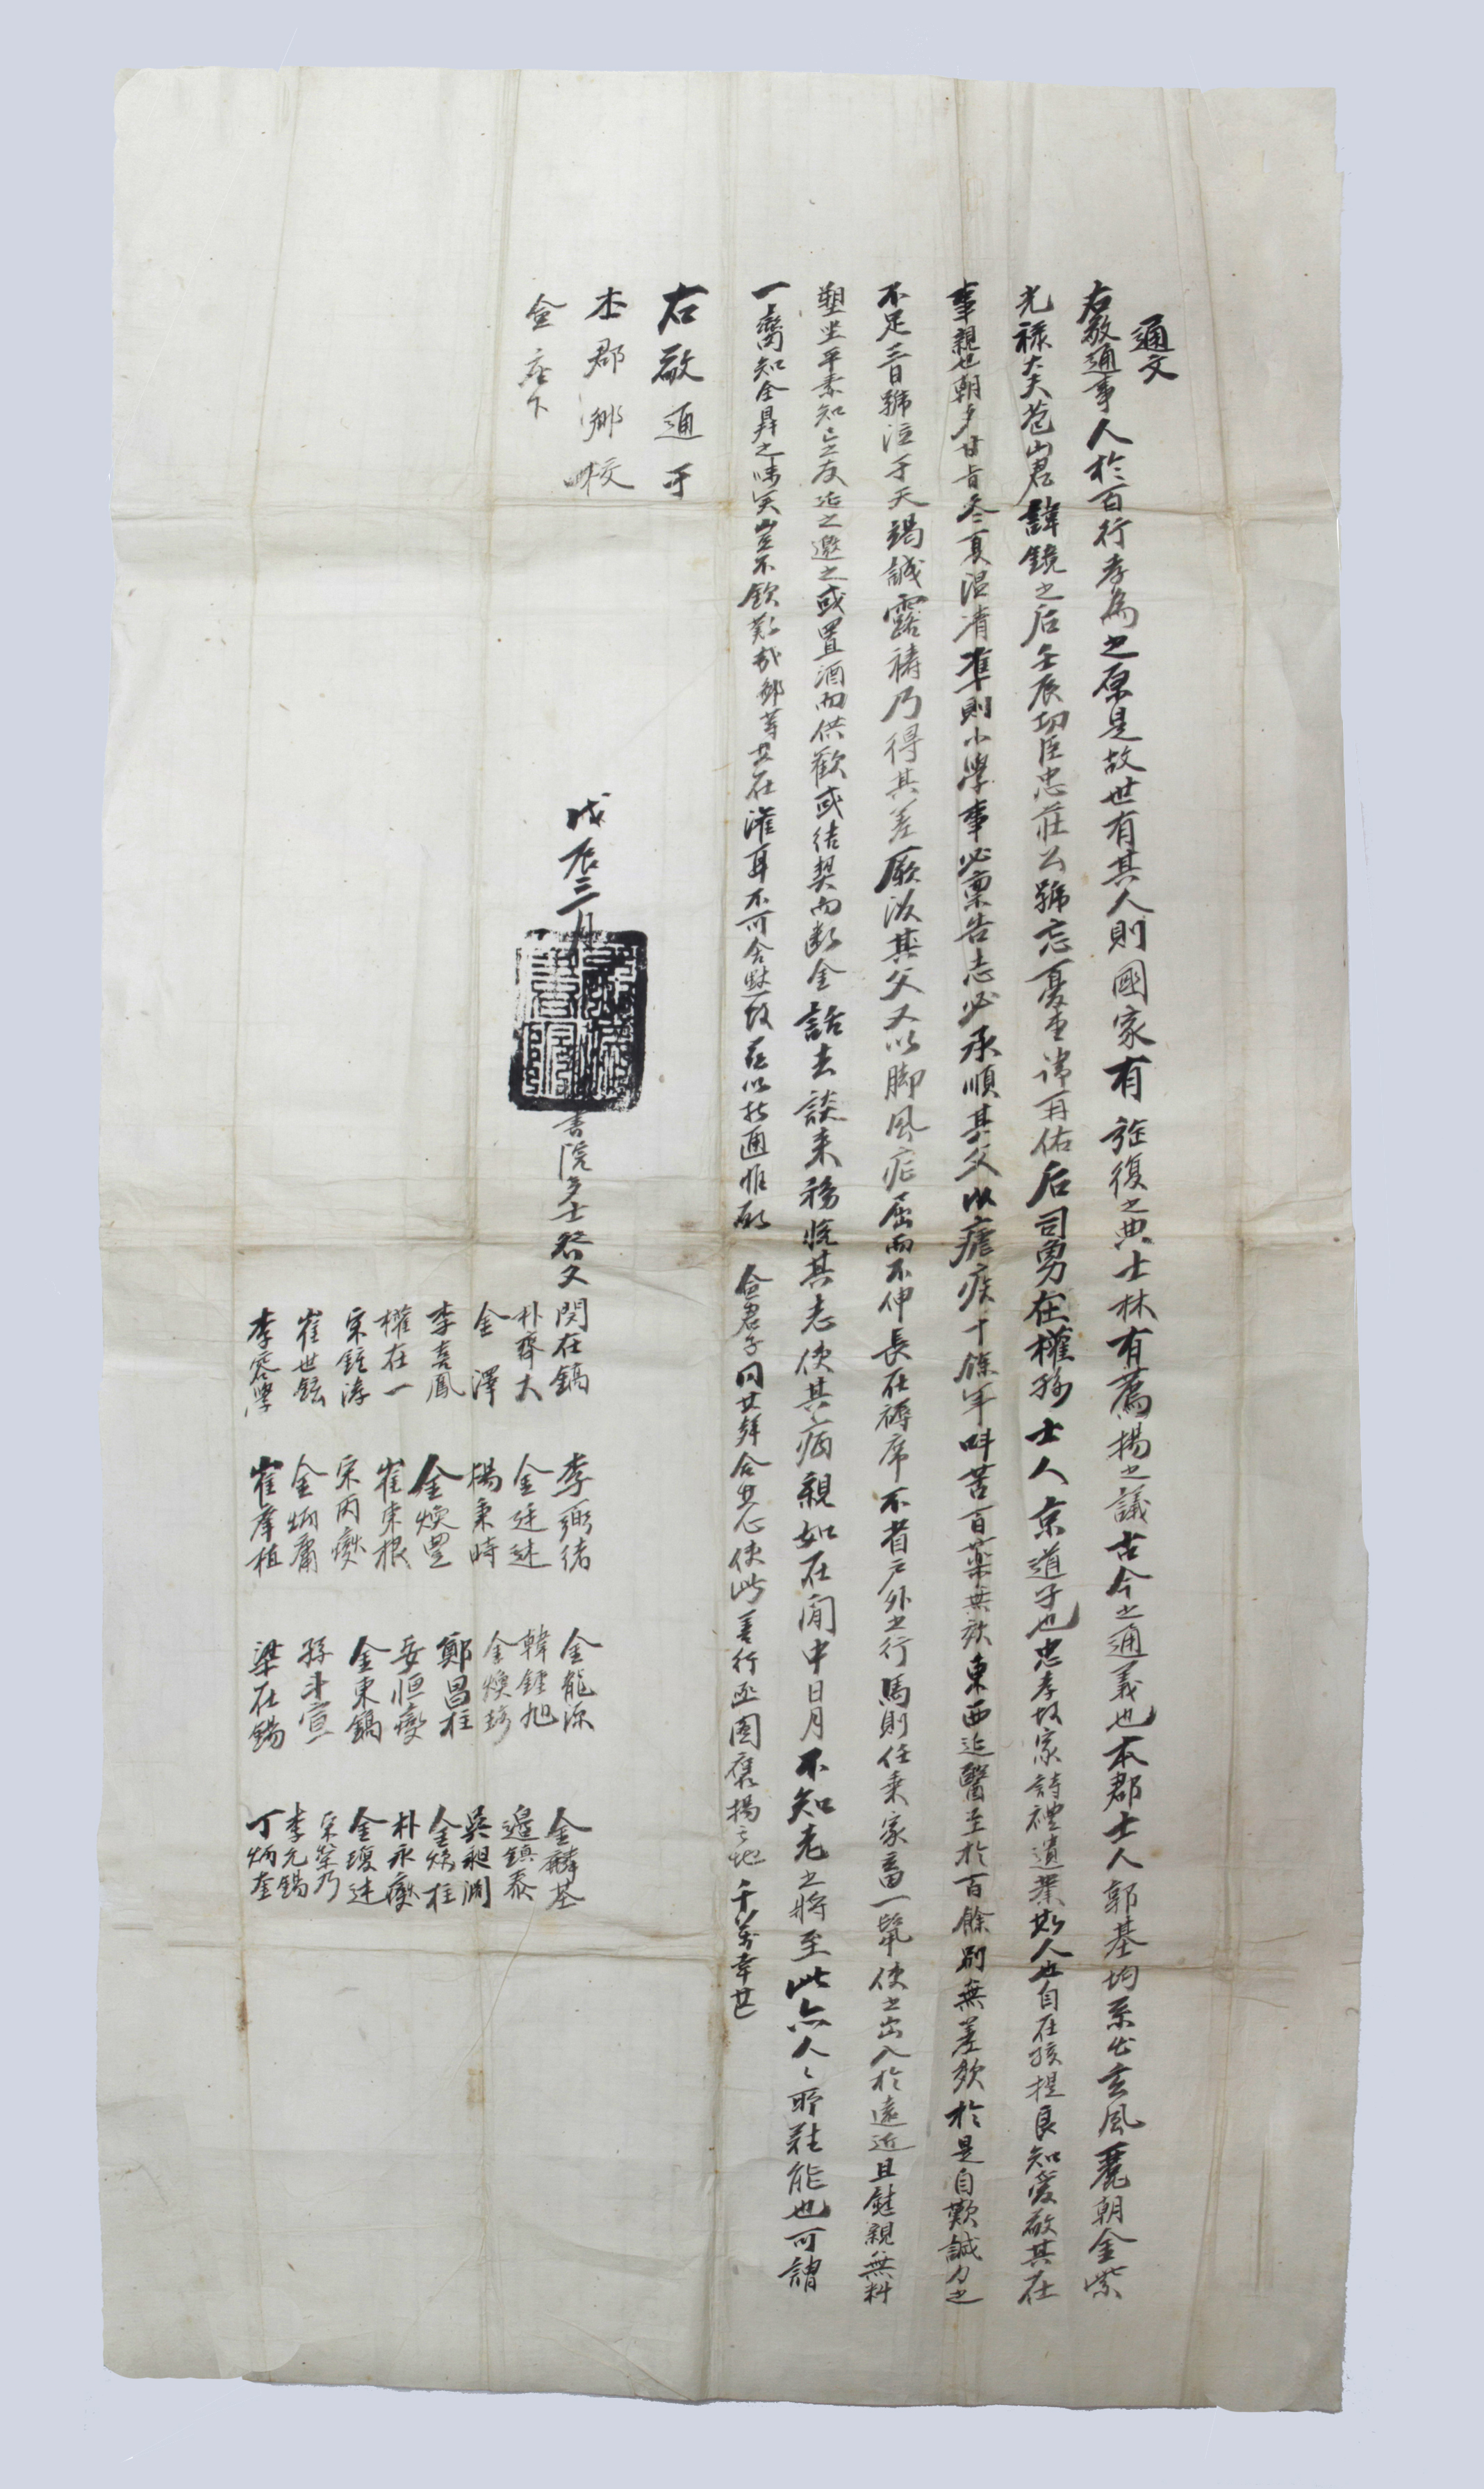 通文
右敬通事人於百行孝爲之原是故世有其人則國家有旌復之典士林有薦揚之議古今之通義也本郡士人郭基均系出玄風麗朝金紫
光祿大夫苞山君諱鏡之后壬辰功臣忠莊公號忘憂堂諱再佑后司勇在權孫士人京道子也忠孝故家詩禮遺業斯人也自在孩提良知愛敬其在
事親也朝夕甘旨冬夏溫凊準則小學事必稟告志必承順其父以瘧疾十餘年叫苦百藥無效東西迎醫至於百餘剧無差欻於是自歎誠力之
不足三日號泣于天竭誠露禱乃得其差厥後其父又以脚風症屈而不伸長在褥席不省戶外之行馬則任乘家畜一氅使之出入於遠近且慰親無料
塑坐平素知己之友迎之邀之或置酒而供歡或結契而斷金話去談來務悅其志使其病親如在閒中日月不知老之將至此亦人々所難能也可謂
一臠知全鼎之味矣豈不欽歎哉鄙等其在灌耳不可含默故玆以抆通惟願 僉君子同其聲合其心使此善行亟圖襃揚之地千萬幸甚
右敬通于
本郡鄕校
僉座下
戊辰三月 書院多士發文
閔在鎬 李彌緖 金龍源 金麟基
朴齊大 金廷述 韓鍾旭 邊鎭泰
金澤 楊秉時 金煥珍 吳昶潤
李喜鳳 金煥豊 鄭昌柱 金煥柱
權在一 崔東根 安恒燮 朴永燮
宋鍾淳 宋丙燮 金東鎬 金瓊述
崔世鉉 金炳庸 孫斗宣 宋榮乃
李容學 崔肇植 梁在錫 李元錫
丁炳奎